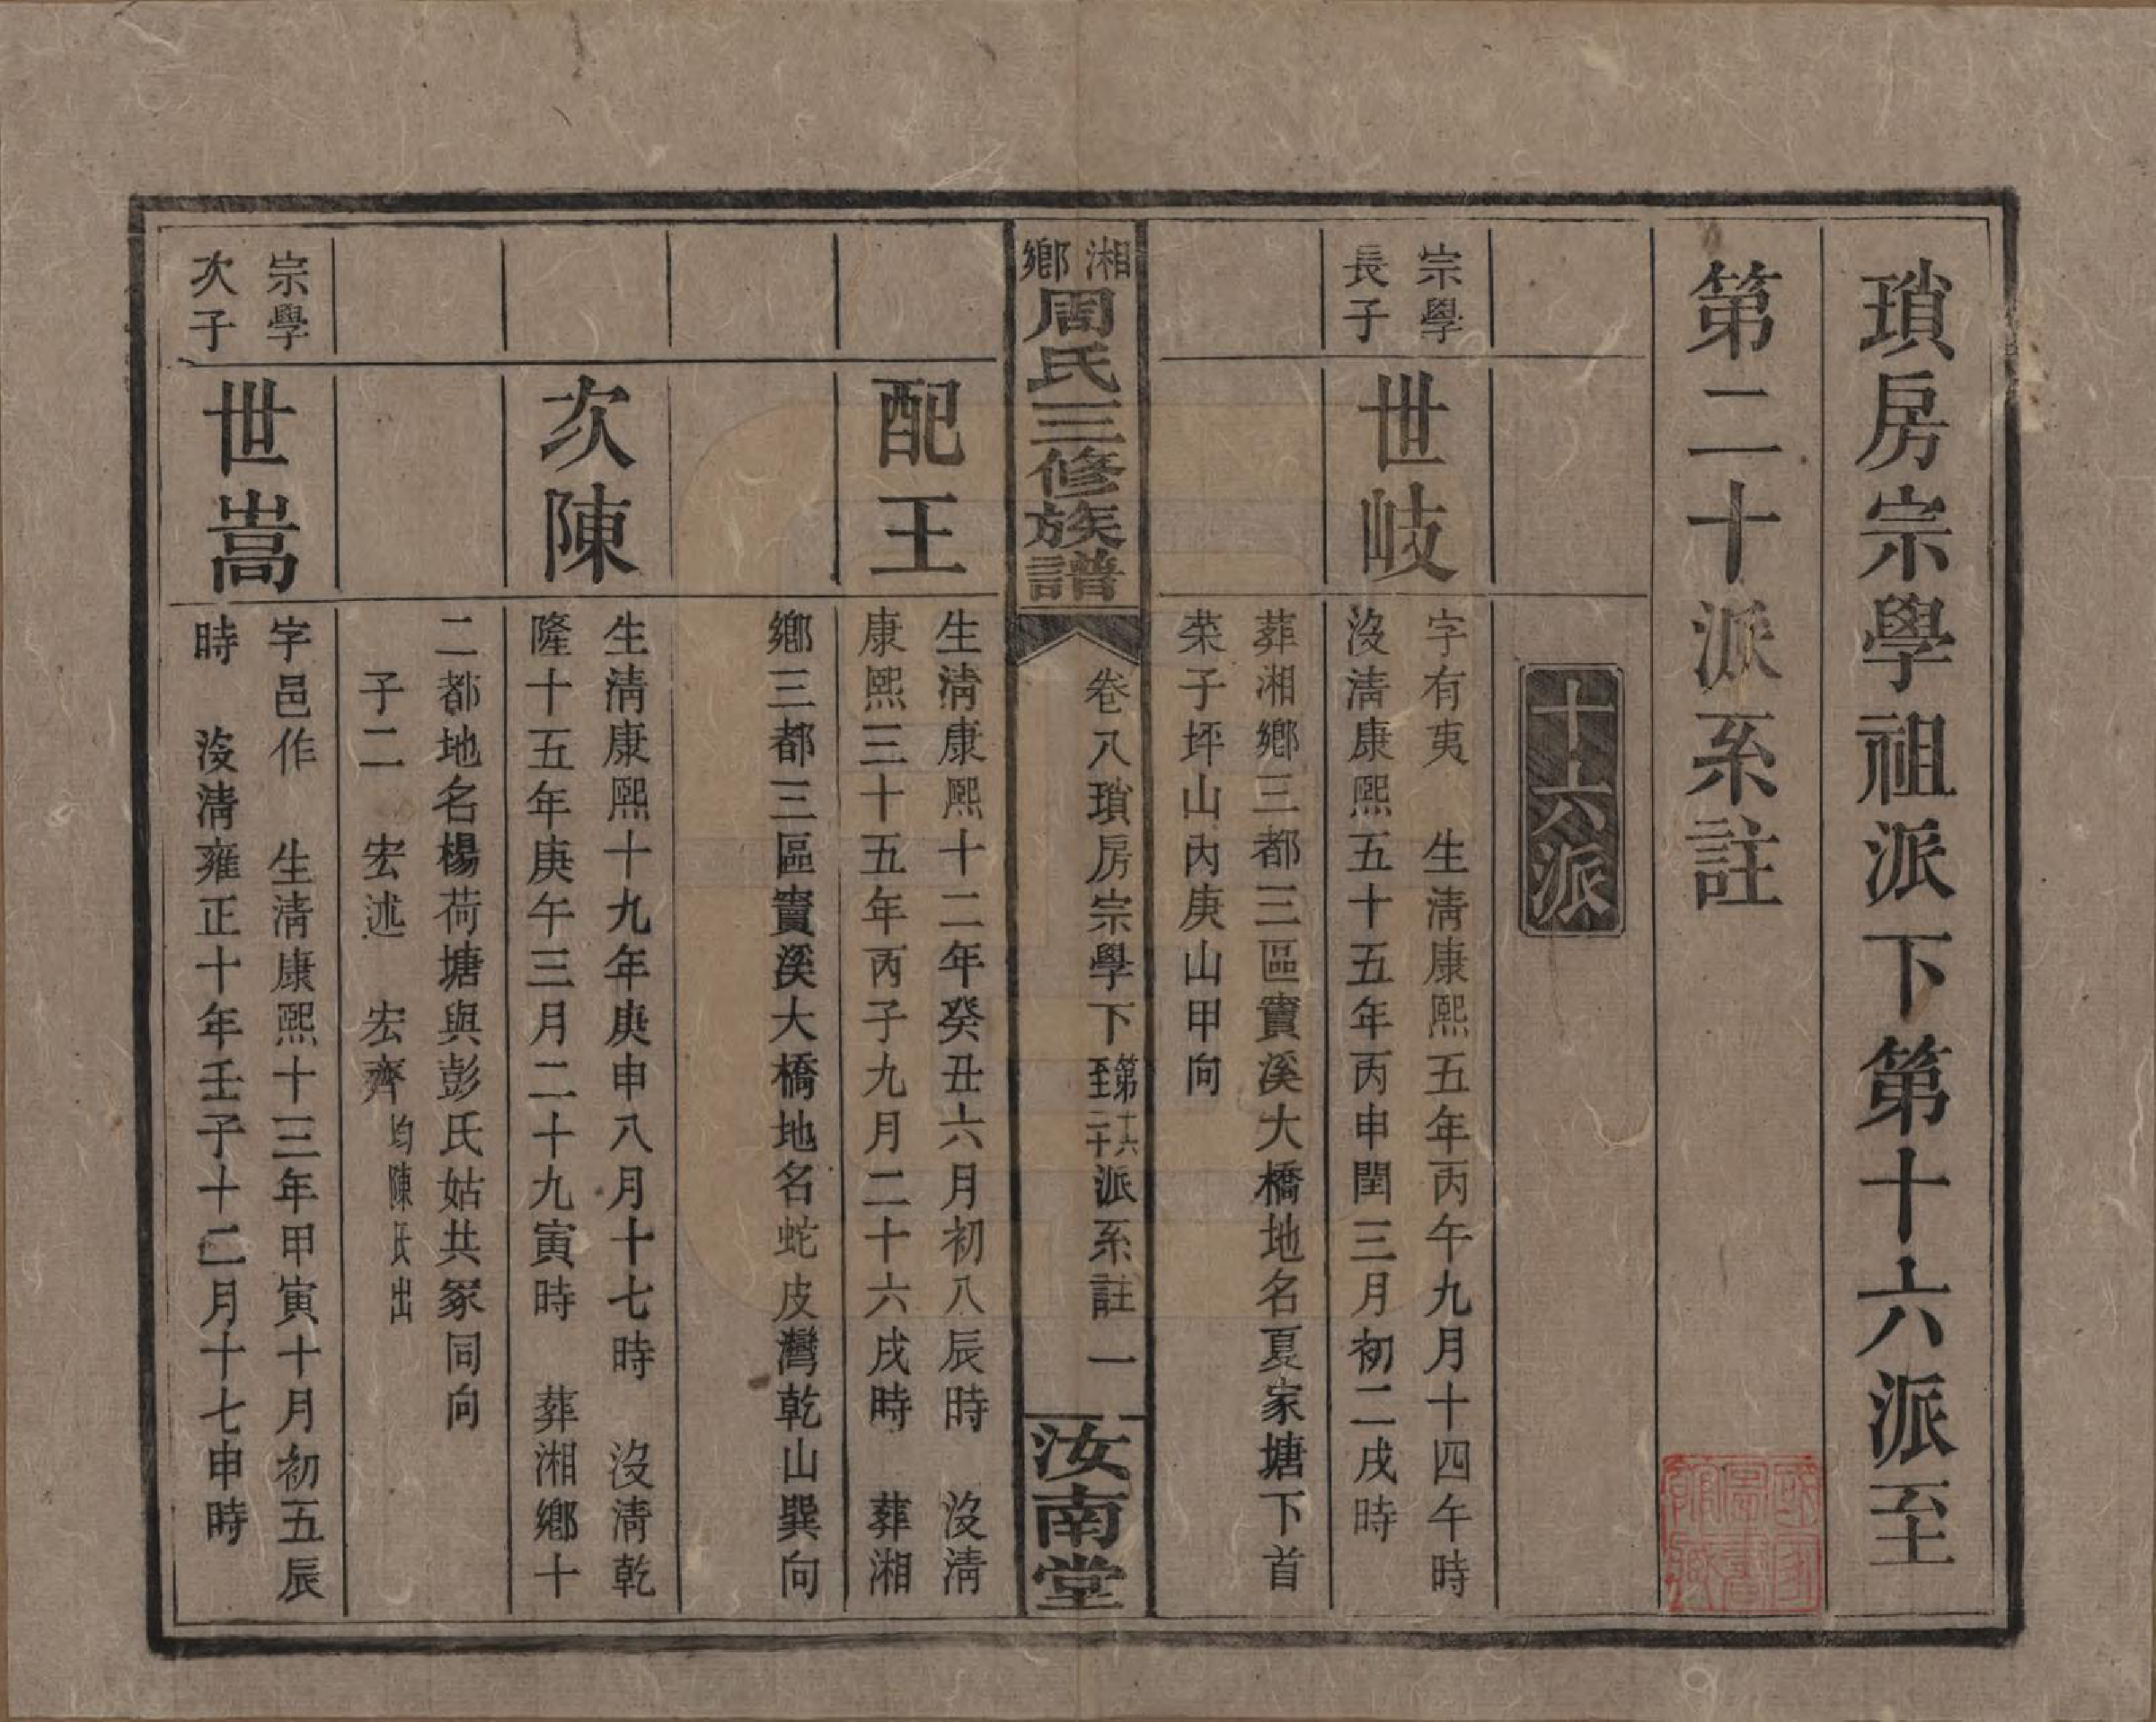 瑣房宗學祖派下第十六派至
第二十派系註
十六派
宗學
長子
世岐
字有夷　生清康熙五年丙午九月十四午時
沒清康熙五十五年丙申閏三月初二戌時
葬湘鄉三都三區賣溪大橋地名夏家塘下首
菜子坪山內庚山甲向
湘鄉周氏三修族譜
卷八瑣房宗學下第十六至二十派系註　一
汝南堂
配王
生清康熙十二年癸丑六月初八辰時　沒清
康熙三十五年丙子九月二十六戌時　葬湘
鄉三都三區賣溪大橋地名蛇皮灣乾山巽向
次陳
生清康熙十九年庚申八月十七時　沒清乾
隆十五年庚午三月二十九寅時　葬湘鄉十
二都地名楊荷塘與彭氏姑共冢同向
子二　宏述　宏齊均陳氏出
宗學
次子
世嵩
字邑作　生清康熙十三年甲寅十月初五辰
時　沒清雍正十年壬子十二月十七申時